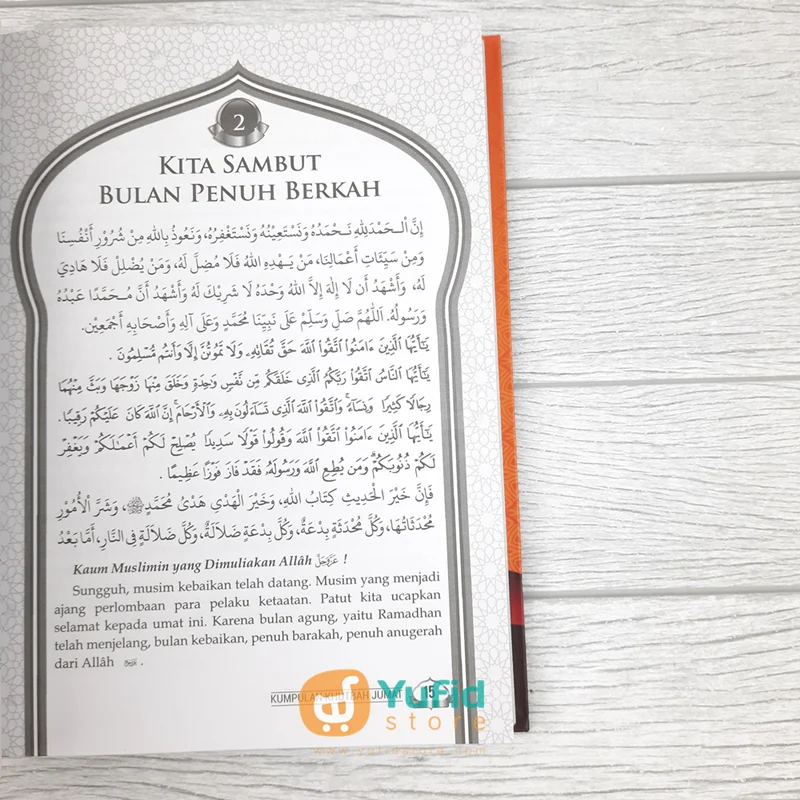 2
KITA SAMBUT
BULAN PENUH BERKAH
إِنَّ الْـحَمْدَلِلّٰهِ نَـحْمَدُهُ وَنَسْتَعِيْنُهُ وَنَسْتَغْفِرُهُ، وَنَعُوذُ بِاللهِ مِنْ شُرُوْرِ أَنْفُسِنَا
وَمِنْ سَيِّئَاتِ أَعْمَالِنَا، مَنْ يَـهْدِهِ اللهُ فَلَا مُضِلَّ لَهُ، وَمَنْ يُضْلِلْ فَلَا هَادِيَ
لَهُ، وَأَشْهَدُ أَن لَا إِلٰهَ إِلاَّ اللهُ وَحْدَهُ لَا شَرِيْكَ لَهُ وَأَشْهَدُ أَنَّ مُـحَمَّدًا عَبْدُهُ
وَرَسُولُهُ. اَللّٰهُمَّ صَلِّ وَسَلِّمْ عَلَى نَبِيِّنَا مُحَمَّدٍ وَعَلَى آلِهِ وَأَصْحَابِهِ أَجْمَعِيْن.
يَـٰٓأَيُّهَا ٱلَّذِينَ ءَامَنُوا۟ ٱتَّقُوا۟ ٱللَّهَ حَقَّ تُقَاتِهِۦ وَلَا تَمُوتُنَّ إِلَّا وَأَنتُم مُّسْلِمُونَ .
يَـٰٓأَيُّهَا ٱلنَّاسُ ٱتَّقُوا۟ رَبَّكُمُ ٱلَّذِى خَلَقَكُم مِّن نَّفْسٍ وَٰحِدَةٍ وَخَلَقَ مِنْهَا زَوْجَهَا وَبَثَّ مِنْهُمَا
رِجَالًا كَثِيرًا وَنِسَآءً ۚ وَٱتَّقُوا۟ ٱللَّهَ ٱلَّذِى تَسَآءَلُونَ بِهِۦ وَٱلْأَرْحَامَ ۚ إِنَّ ٱللَّهَ كَانَ عَلَيْكُمْ رَقِيبًا.
يَـٰٓأَيُّهَا ٱلَّذِينَ ءَامَنُوا۟ ٱتَّقُوا۟ ٱللَّهَ وَقُولُوا۟ قَوْلًا سَدِيدًا يُصْلِحْ لَكُمْ أَعْمَـٰلَكُمْ وَيَغْفِرْ
لَكُمْ ذُنُوبَكُمْ ۗ وَمَن يُطِعِ ٱللَّهَ وَرَسُولَهُۥ فَقَدْ فَازَ فَوْزًا عَظِيمًا .
فَإِنَّ خَيْرَ الْحَدِيْثِ كِتَابُ اللهِ، وَخَيْرَ الْهَدْيِ هَدْيُ مُحَمَّدٍ ﷺ، وَشَرَّ الْأُمُوْرِ
مُحْدَثَاتُهَا، وَكُلَّ مُحْدَثَةٍ بِدْعَةٌ، وَكُلَّ بِدْعَةٍ ضَلاَلَةٌ، وَكُلَّ ضَلاَلَةٍ فِي النَّارِ، أَمَّا بَعْدُ
Kaum Muslimin yang Dimuliakan Allâh عَزَّوَجَلَّ !
Sungguh, musim kebaikan telah datang. Musim yang menjadi
ajang perlombaan para pelaku ketaatan. Patut kita ucapkan
selamat kepada umat ini. Karena bulan agung, yaitu Ramadhan
telah menjelang, bulan kebaikan, penuh barakah, penuh anugerah
dari Allâh .
KUMPULAN KHUTBAH JUMAT 15
Yufid
store
www.yufidstore.com